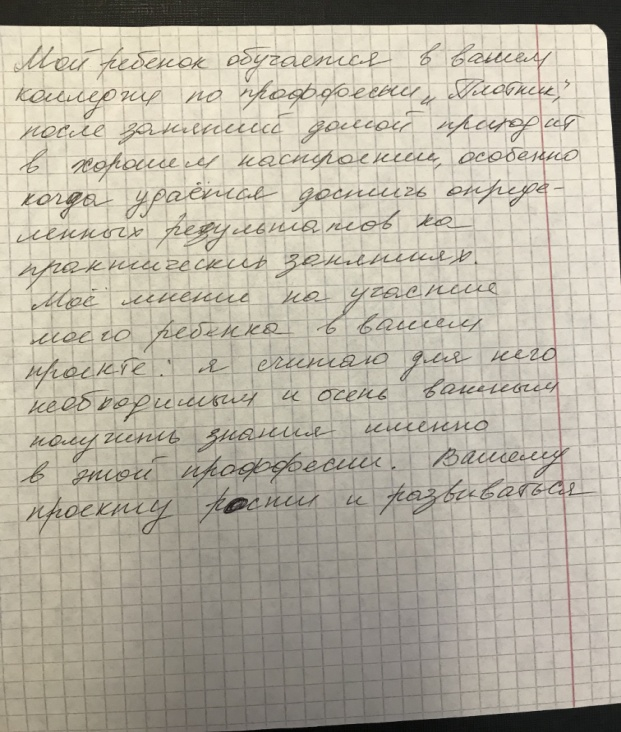 Мой ребенок обучается в вашем
колледже по проффесии „Плотник",
после занятий домой приходит
в хорошем настроении, особенно
когда удаётся достичь опреде-
ленных результатов на
практических занятиях.
Моё мнение на участие
моего ребенка в вашем
проекте: я считаю для него
необходимым и очень важным
получить знания именно
в этой проффесии. Вашему
проекту расти и развиваться